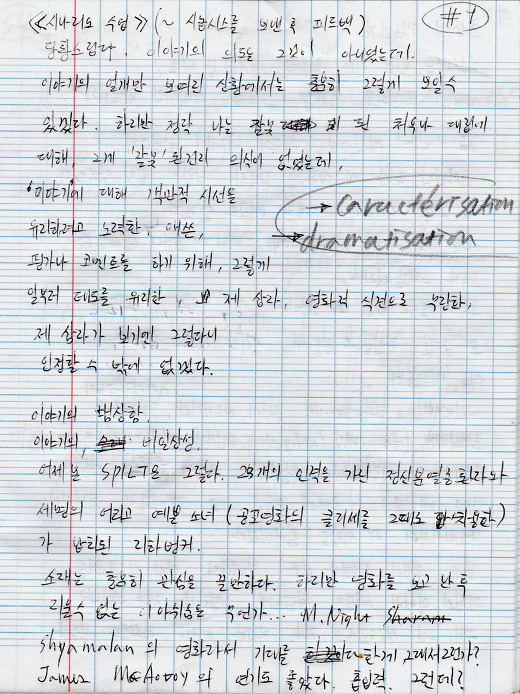 #1
《시나리오 수업》 (~ 시놉시스를 보낸 후 피드백)
당황스럽다. 이야기의 의도는 그것이 아니었는데.
이야기의 얼개만 보여진 상황에서는 충분히 그렇게 보일 수
있겠다. 하지만 정작 나는 잘못 된 처우나 대립에
대해, 그게 '잘못'된건지 의식이 없었는데,
'이야기'에 대해 객관적 시선을
→ caractérisation
유지하려고 노력한, 애쓴,
→ dramatisation
평가나 코멘트를 하기 위해, 그렇게
일부러 태도를 유지한, 제 삼자, 영화적 시선으로 무장한,
제 삼자가 보기엔 그렇다니
인정할 수 밖에 없겠다.
이야기의 범상함.
이야기의, 비일상성.
어제 본 SPLIT은 그렇다. 23개의 인격을 가진 정신분열증환자와
세명의 어리고 예쁜 소녀 (공포영화의 클리셰를 그대로 차용한)
가 납치된 지하벙커.
소재는 충분히 관심을 끌만하다. 하지만 영화를 보고 난 후
지울수 없는 이 아쉬움은 무언가... M.Night
Shyamalan의 영화라서 기대를 한게 그래서그런가?
James McAvoy의 연기도 좋았다. 흡입력. 그런데?